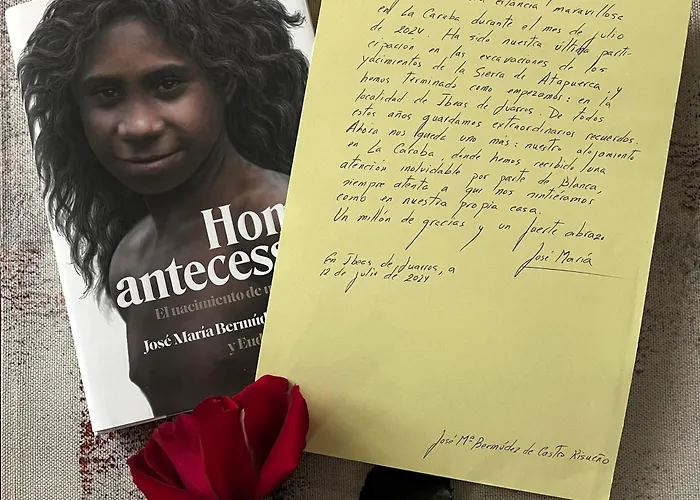 Hom
antecess
El nacimiento de u
José María Bermúd
y Eud
estancia maravillosa
en La Caraba durante el mes de julio
de 2024. Ha sido nuestra última parti-
cipación en las excavaciones de los
yacimientos de la Sierra de Atapuerca, y
hemos terminado como empezamos: en la
localidad de Ibeas de Juarros. De todos
estos años guardamos extraordinarios recuerdos.
Ahora nos queda uno más: nuestro alojamiento
en La Caraba, donde hemos recibido una
atención inolvidable por parte de Blanca,
siempre atenta a que nos sintiéramos
como en nuestra propia casa.
Un millón de gracias y un fuerte abrazo
José María
En Ibeas de Juarros, a
12 de julio de 2024
José Mª Bermúdez de Castro Risueño